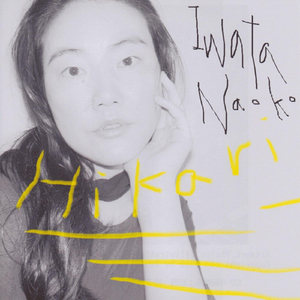 Iwata
Naoko
Hikari